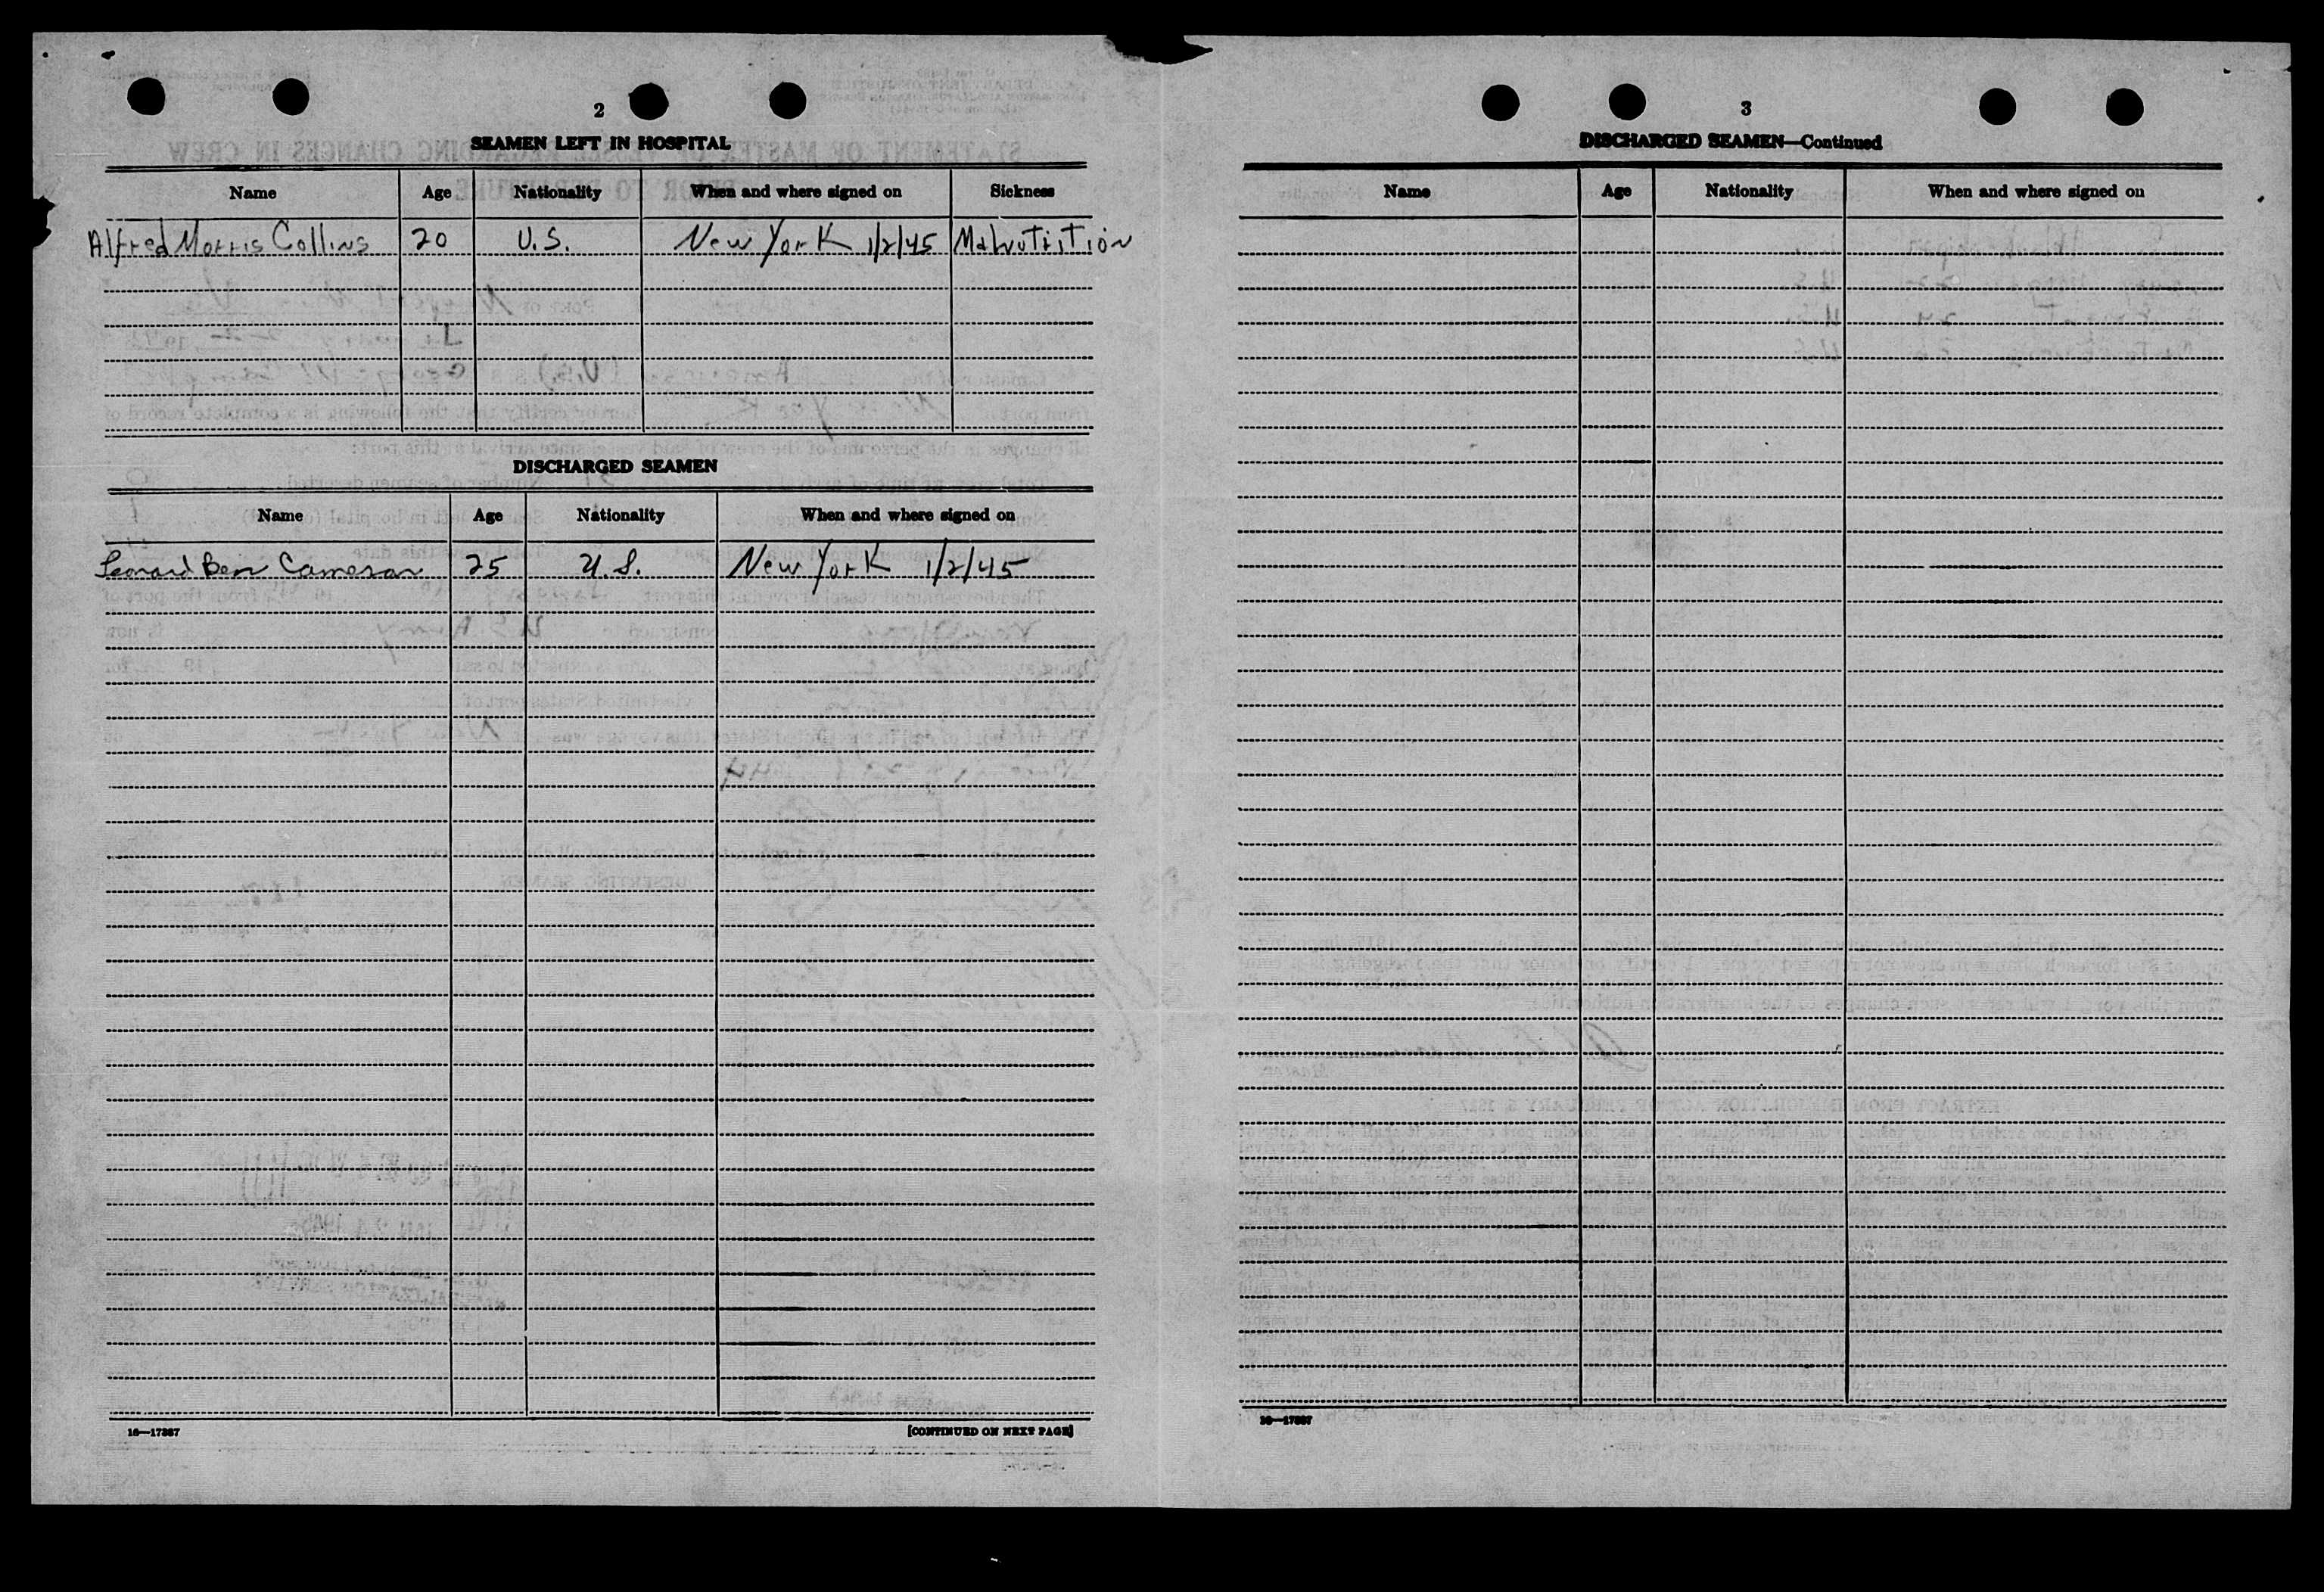 2
SEAMEN LEFT IN HOSPITAL
Name Age Nationality When and where signed on Sickness
Alfred Morris Collins 20 U.S. New York 1/2/45 Malnutrition
DISCHARGED SEAMEN
Name Age Nationality When and where signed on
Leonard Ben Cameron 25 U.S. New York 1/2/45
16—17387 [CONTINUED ON NEXT PAGE]
3
DISCHARGED SEAMEN—Continued
Name Age Nationality When and where signed on
16—17387